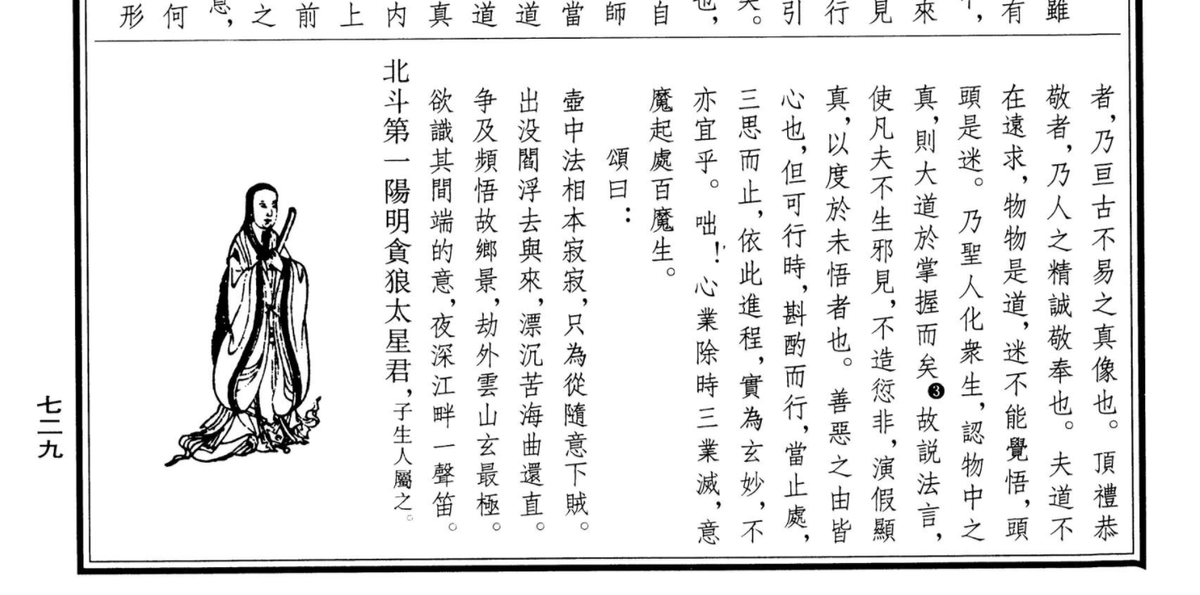 雖
有
來
見
行
引
矣。
也，
自
師
當
道
道
真
内
上
前
之
意，
何
形
者，乃亘古不易之真像也。頂禮恭
敬者，乃人之精誠敬奉也。夫道不
在遠求，物物是道，迷不能覺悟，頭
頭是迷。乃聖人化衆生，認物中之
真，則大道於掌握而矣❸故説法言，
使凡夫不生邪見，不造愆非，演假顯
真，以度於未悟者也。善惡之由皆
心也，但可行時，斟酌而行，當止處，
三思而止，依此進程，實為玄妙，不
亦宜乎。咄！心業除時三業滅，意
魔起處百魔生。
頌曰：
壺中法相本寂寂，只為從隨意下賊。
出没閻浮去與來，漂沉苦海曲還直。
争及頻悟故鄉景，劫外雲山玄最極。
欲識其間端的意，夜深江畔一聲笛。
北斗第一陽明貪狼太星君，子生人屬之。
七二九